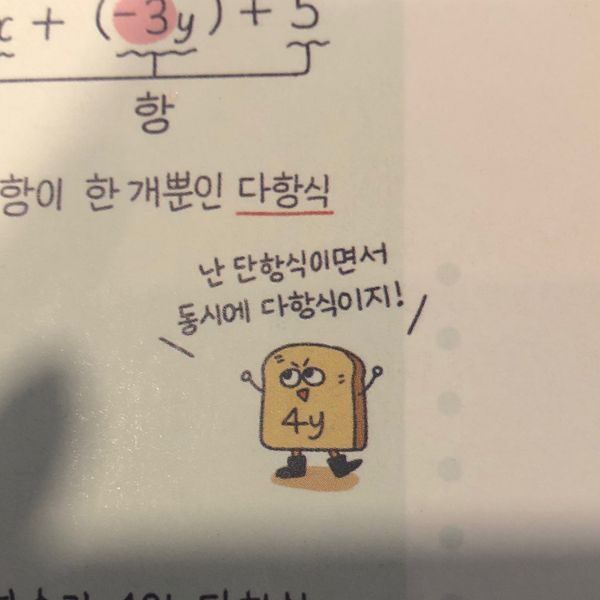 x + (-3y) + 5
항
항이 한 개뿐인 다항식
난 단항식이면서
동시에 다항식이지!
4y